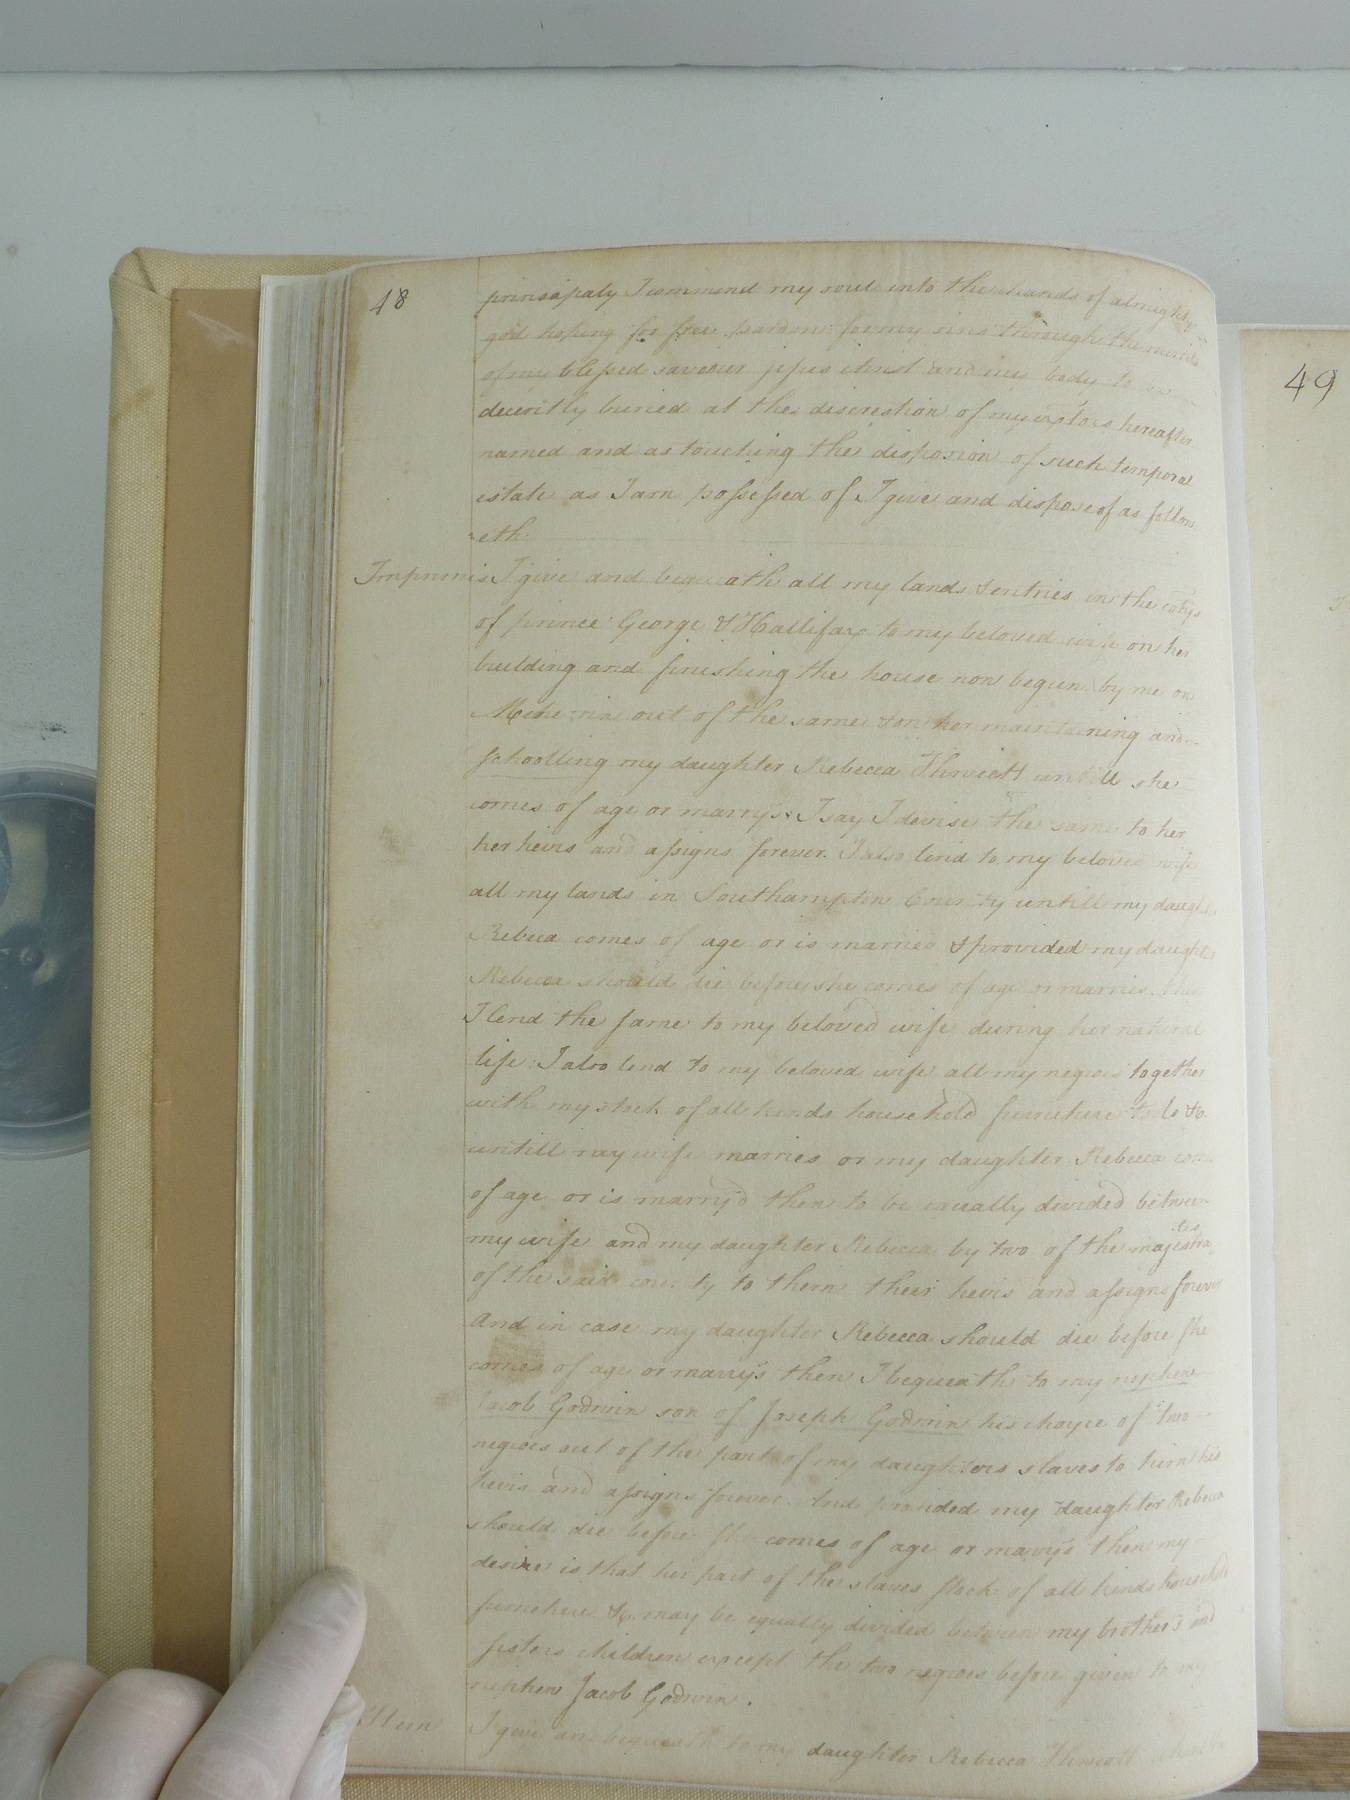 48
49
prinsapaly I commend my soul into the hands of almighty
god hoping for free pardon for my sins through the merits
of my blessed saveour jesus christ and my body to be
decently buried at the discrestion of my exptors hereafter
named and as touching the disposion of such temporal
estate as I am possessed of I give and dispose of as follow
eth
Imprimis I give and bequeath all my lands & entries in the cotys
of prince George & Hallifax to my beloved wife on her
building and finishing the house now begun by me on
out of the same & on her maintaining and
schoolling my daughter Rebecca Thweatt untill she
comes of age or marry's I say I devise the same to her
her heirs and assigns forever. I also lend to my beloved wife
all my lands in Southampton County untill my daughter
Rebeca comes of age or is married & provided my daughter
Rebecca should die before she comes of age or marries then
I lend the same to my beloved wife during her natural
life I also lend to my beloved wife all my negroes together
with my stock of all kinds household furniture tools &c.
untill my wife marries or my daughter Rebecca come
of age or is marry'd then to be equally divided between
my wife and my daughter Rebecca by two of the majestrates
of the said county to them their heirs and assigns forever
And in case my daughter Rebecca should die before she
comes of age or marry's then I bequeath to my nephew
Jacob Godwin son of Joseph Godwin his choyce of two
negroes out of the part of my daughters slaves to him his
heirs and assigns forever. And provided my daughter Rebecca
should die before she comes of age or marry's then my
desire is that her part of the slaves stock of all kinds household
furniture &c. may be equally divided between my brother's and
sisters children except the two negroes before given to my
nephew Jacob Godwin.
Item I give and bequeath to my daughter Rebecca Thweatt